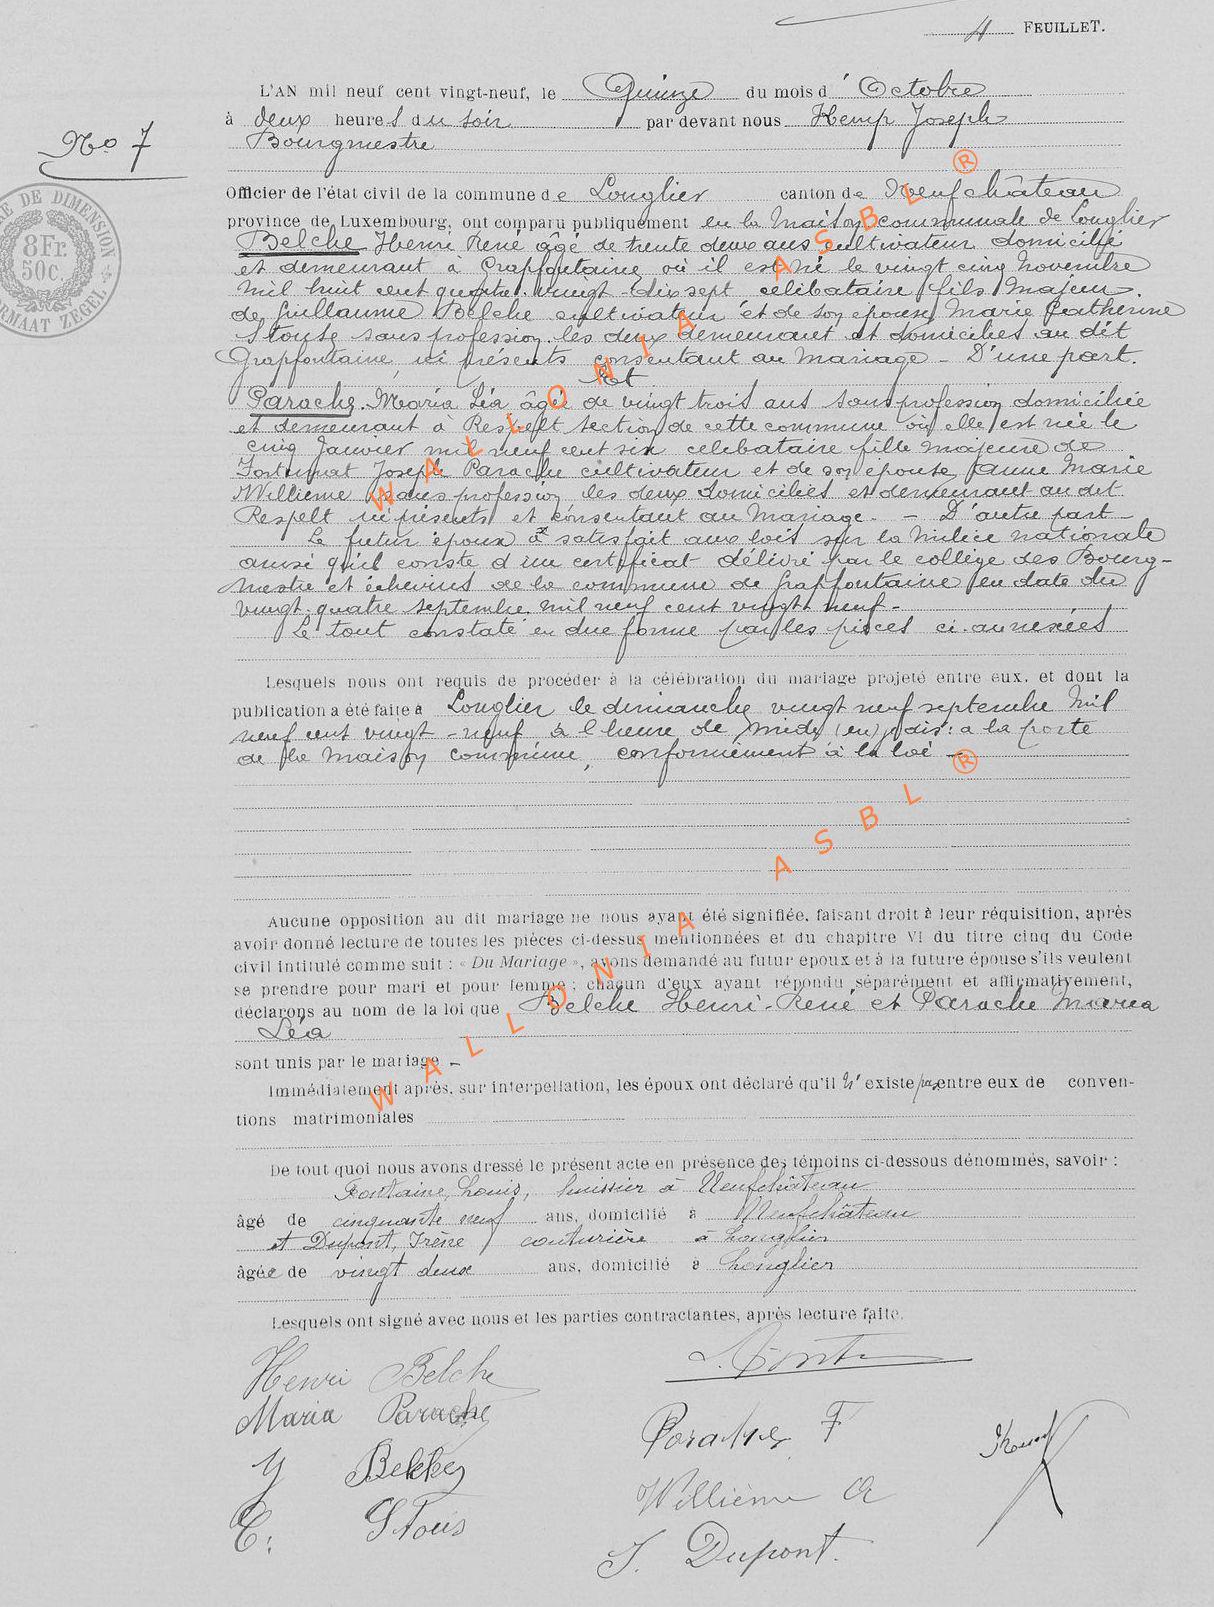 4 FEUILLET.
L'AN mil neuf cent vingt-neuf, le Quinze du mois d' Octobre
à deux heures du soir par devant nous Kemp Joseph
Bourgmestre
No 7
Officier de l'état civil de la commune de Longlier canton de Neufchâteau
province de Luxembourg, ont comparu publiquement en la Maison communale de Longlier
Belche Henri René âgé de trente deux ans cultivateur domicilié
et demeurant à Grapfontaine où il est né le vingt cinq Novembre
mil huit cent quatre-vingt-dix sept célibataire fils majeur
de Guillaume Belche cultivateur et de son épouse Marie Catherine
Stouse sans profession les deux demeurant et domiciliés au dit
Grapfontaine, ici présents consentant au mariage - D'une part.
Et
Parache Maria Léa âgée de vingt trois ans sans profession domiciliée
et demeurant à Respelt section de cette commune où elle est née le
cinq Janvier mil neuf cent six célibataire fille majeure de
Fortunat Joseph Parache cultivateur et de son épouse Anne Marie
Willième sans profession les deux domiciliés et demeurant au dit
Respelt ici présents et consentant au mariage. - D'autre part
Le futur époux a satisfait aux lois sur la Milice nationale
ainsi qu'il conste d'un certificat délivré par le collège des Bourg-
mestre et échevins de la commune de Grapfontaine en date du
vingt-quatre septembre mil neuf cent vingt neuf -
Le tout constaté en due forme par les pièces ci-annexées
Lesquels nous ont requis de procéder à la célébration du mariage projeté entre eux, et dont la
publication a été faite à Longlier le dimanche vingt neuf septembre Mil
neuf cent vingt-neuf à l'heure de midi, à la porte
de la Maison commune, conformément à la loi -
Aucune opposition au dit mariage ne nous ayant été signifiée, faisant droit à leur réquisition, après
avoir donné lecture de toutes les pièces ci-dessus mentionnées et du chapitre VI du titre cinq du Code
civil intitulé comme suit : « Du Mariage », avons demandé au futur époux et à la future épouse s'ils veulent
se prendre pour mari et pour femme ; chacun d'eux ayant répondu séparément et affirmativement,
déclarons au nom de la loi que Belche Henri-René et Parache Maria
Léa
sont unis par le mariage -
Immédiatement après, sur interpellation, les époux ont déclaré qu'il n'existe pas entre eux de conven-
tions matrimoniales
De tout quoi nous avons dressé le présent acte en présence des témoins ci-dessous dénommés, savoir :
Fontaine, Louis, huissier à Neufchâteau
âgé de cinquante neuf ans, domicilié à Neufchâteau
et Dupont, Irène couturière à Longlier
âgée de vingt deux ans, domicilié à Longlier
Lesquels ont signé avec nous et les parties contractantes, après lecture faite.
Henri Belche
Maria Parache
Parache F
Willième A
C. Stous
I. Dupont.
DE DIMENSION
8Fr.
50c.
FORMAAT ZEGEL
WALLONIA ASBL ®
WALLONIA ASBL ®